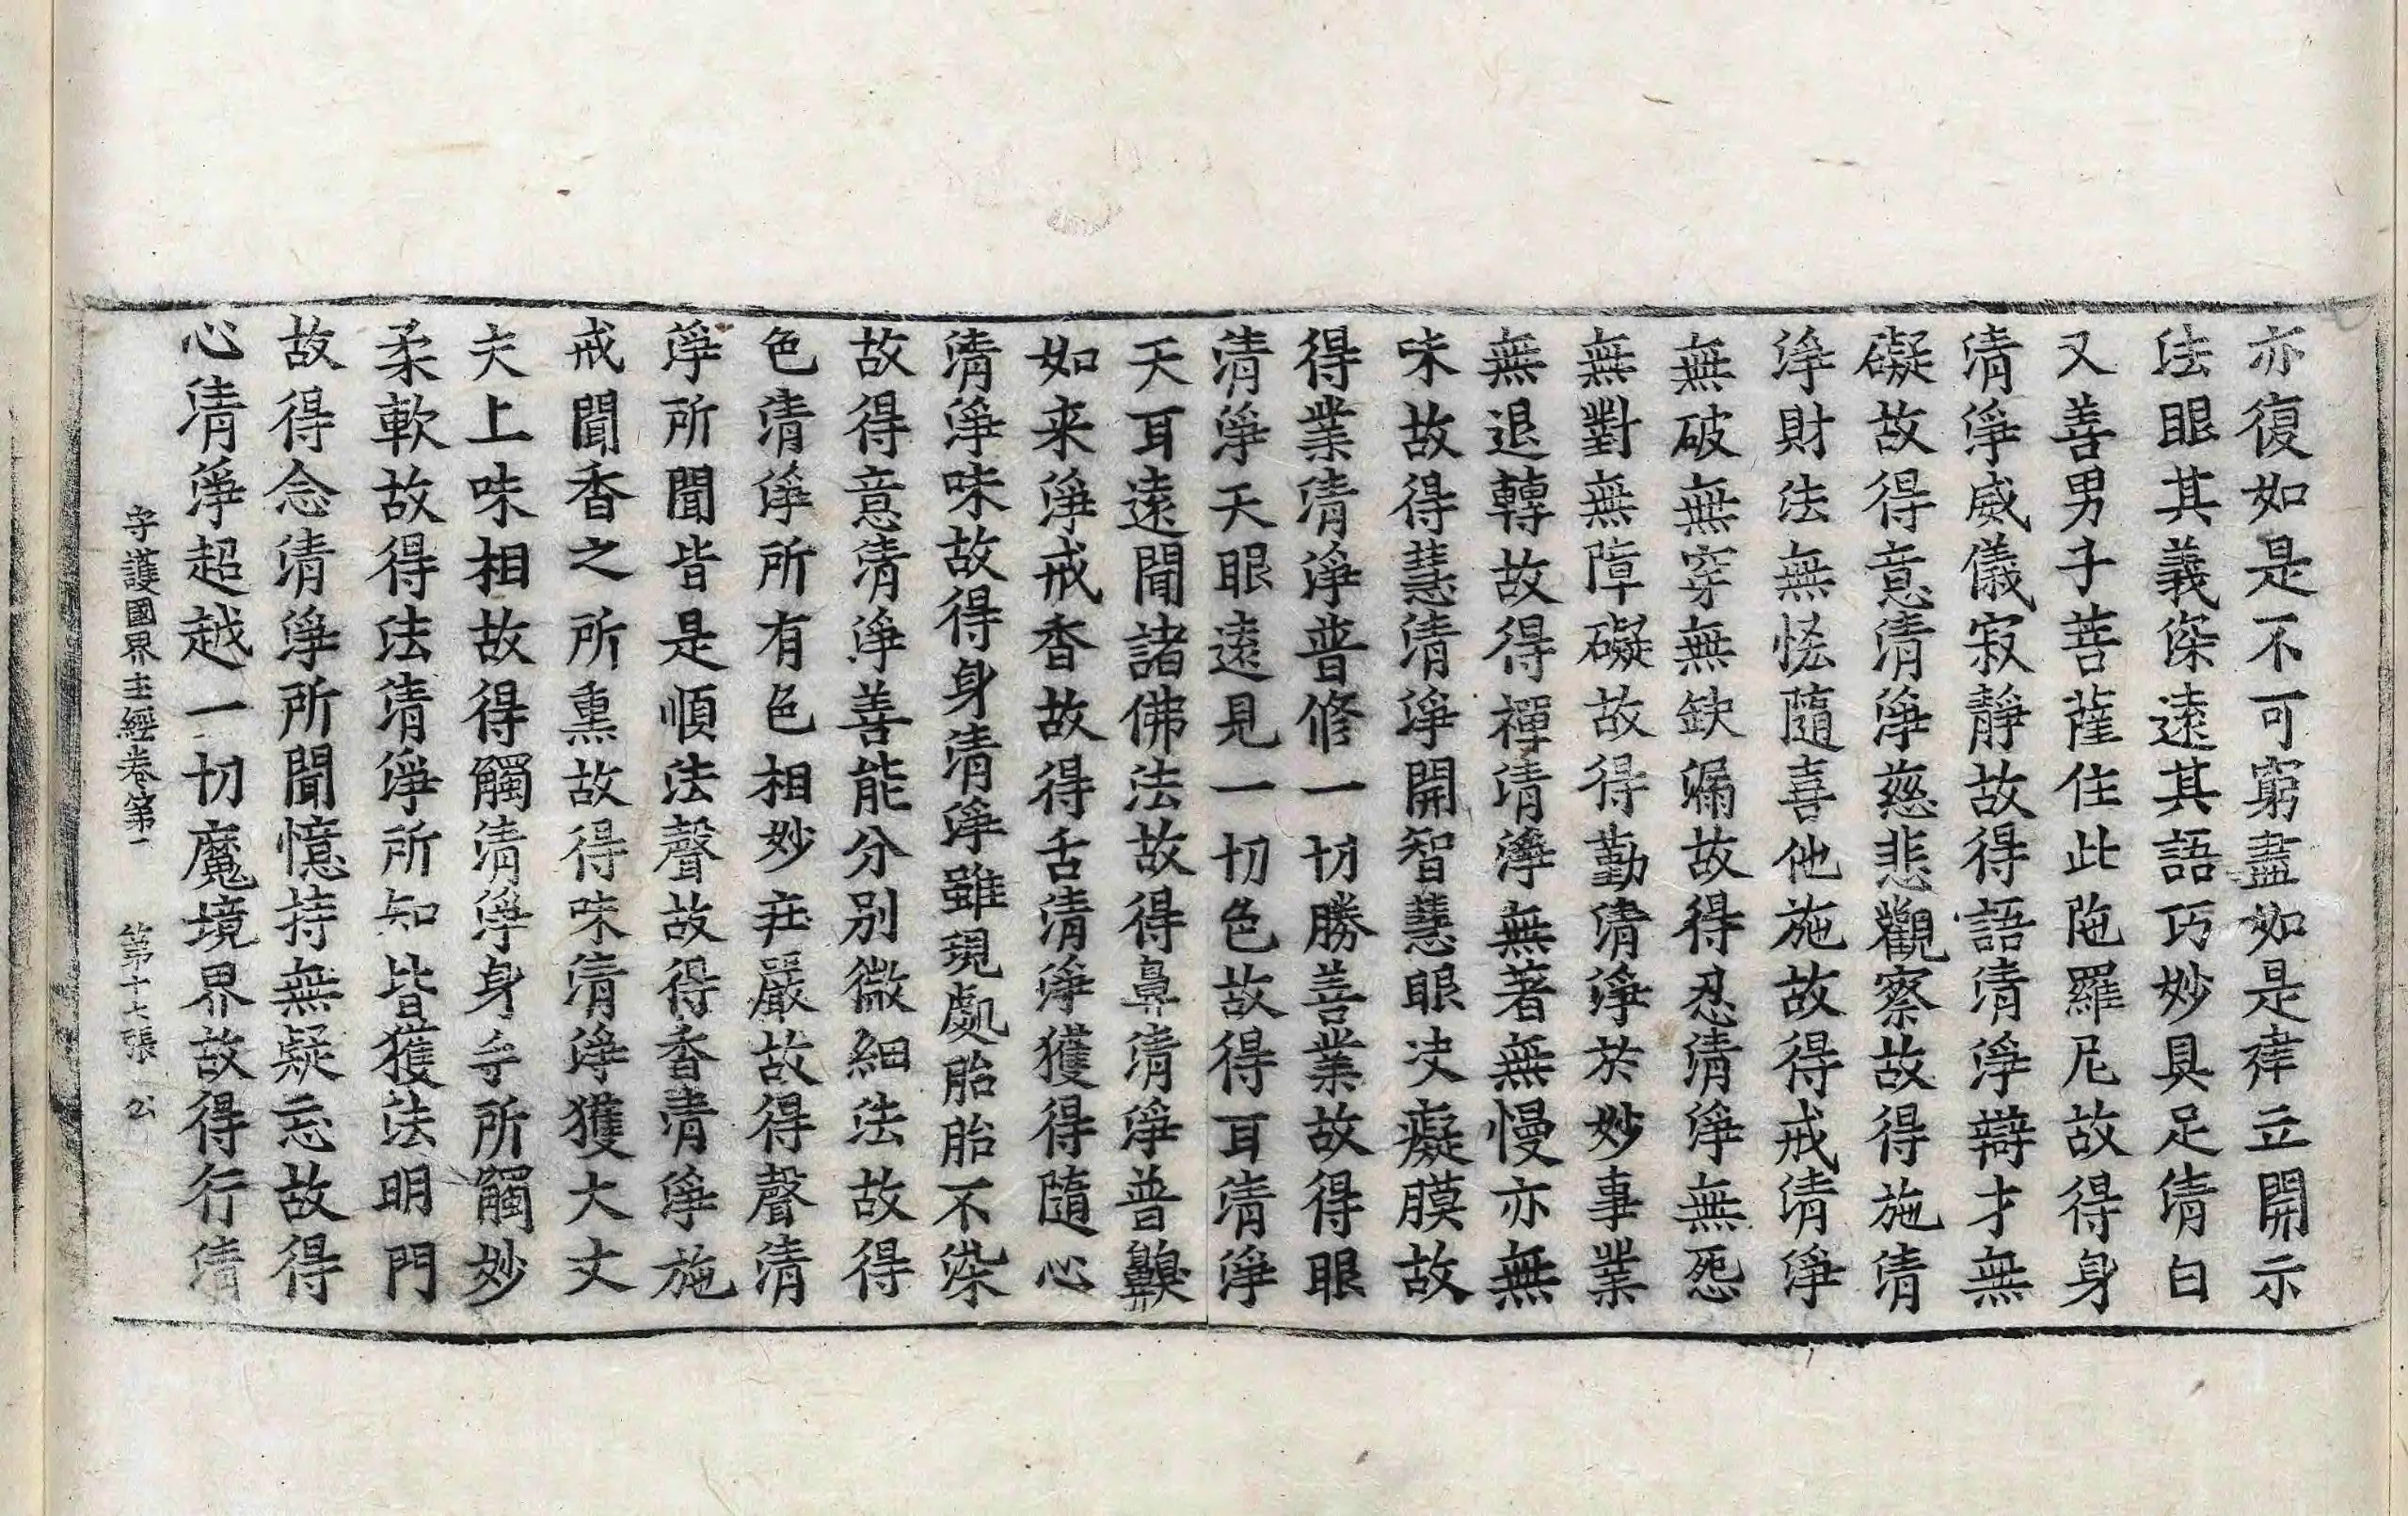 亦復如是不可窮盡如是庠立開示
法眼其義深遠其語巧妙具足清白
又善男子菩薩住此陁羅尼故得身
清淨威儀寂靜故得語清淨辯才無
礙故得意清淨慈悲觀察故得施清
淨財法無恡隨喜他施故得戒清淨
無破無穿無缺漏故得忍清淨無怨
無對無障礙故得勤清淨於妙事業
無退轉故得禪清淨無著無慢亦無
味故得慧清淨開智慧眼决癡膜故
得業清淨普修一切勝善業故得眼
清淨天眼遠見一切色故得耳清淨
天耳遠聞諸佛法故得鼻清淨普齅
如来淨戒香故得舌清淨獲得隨心
清淨味故得身清淨雖現處胎胎不染
故得意清淨善能分別微細法故得
色清淨所有色相妙莊嚴故得聲清
淨所聞皆是順法聲故得香清淨施
戒聞香之所熏故得味清淨獲大丈
夫上味相故得觸清淨身手所觸妙
柔軟故得法清淨所知皆獲法明門
故得念清淨所聞憶持無疑忘故得
心清淨超越一切魔境界故得行清
守護國界主經卷第一　第十七張　公